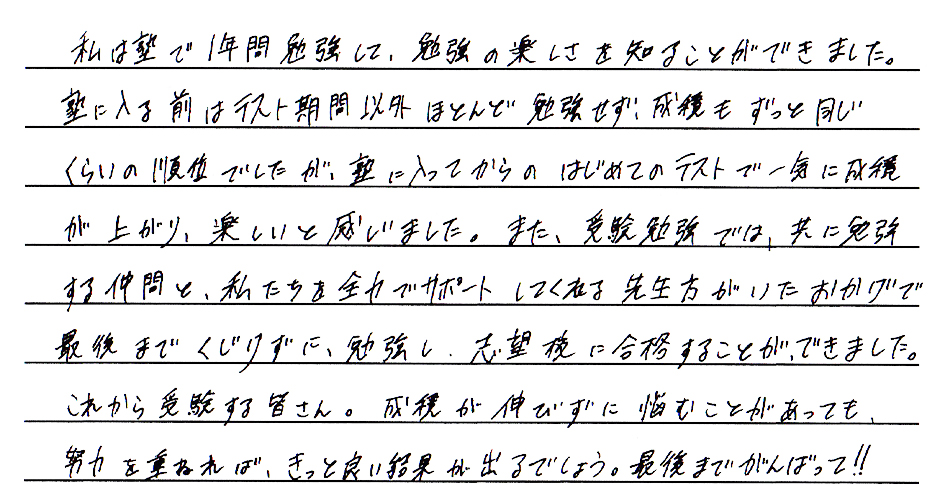 私は塾で1年間勉強して、勉強の楽しさを知ることができました。
塾に入る前はテスト期間以外ほとんど勉強せず、成績もずっと同じ
くらいの順位でしたが、塾に入ってからのはじめてのテストで一気に成績
が上がり、楽しいと感じました。また、受験勉強では、共に勉強
する仲間と、私たちを全力でサポートしてくれる先生方がいたおかげで
最後までくじけずに、勉強し、志望校に合格することが、できました。
これから受験する皆さん。成績が伸びずに悩むことがあっても、
努力を重ねれば、きっと良い結果が出るでしょう。最後までがんばって!!